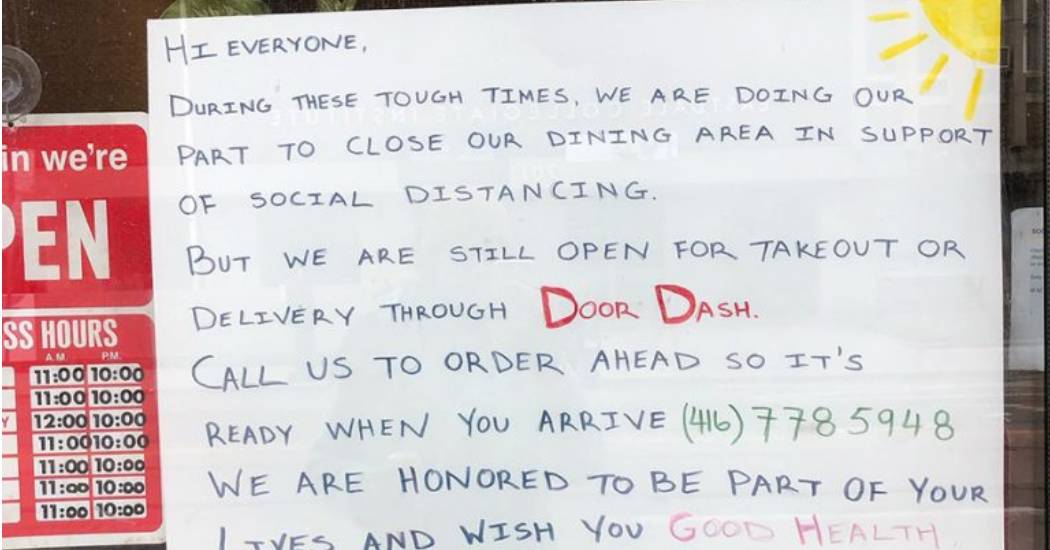 HI EVERYONE,
DURING THESE TOUGH TIMES, WE ARE DOING OUR
PART TO CLOSE OUR DINING AREA IN SUPPORT
OF SOCIAL DISTANCING.
BUT WE ARE STILL OPEN FOR TAKEOUT OR
DELIVERY THROUGH DOOR DASH.
CALL US TO ORDER AHEAD SO IT'S
READY WHEN YOU ARRIVE (416) 778 5948
WE ARE HONORED TO BE PART OF YOUR
LIVES AND WISH YOU GOOD HEALTH
in we're
PEN
SS HOURS
A.M. P.M.
11:00 10:00
11:00 10:00
Y 12:00 10:00
11:00 10:00
11:00 10:00
11:00 10:00
11:00 10:00